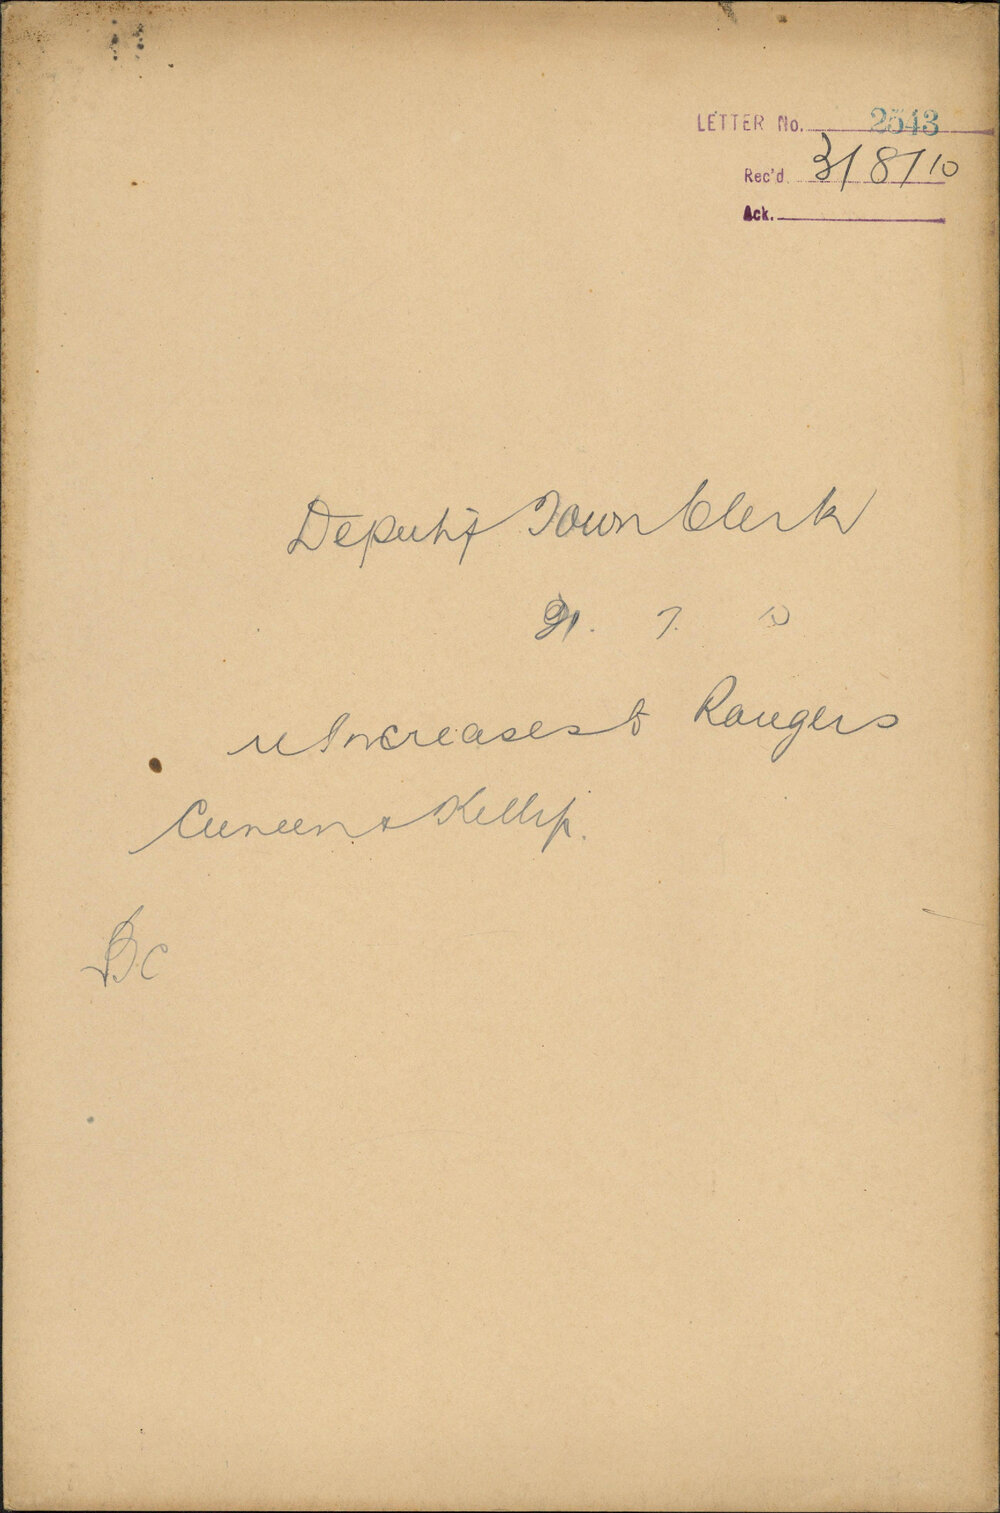 LETTER No. 2543
Rec'd 3/8/10
Ack.
Deputy Town Clerk
7. 10
re Increases to Rangers
Cuneen & Kellip.
BC